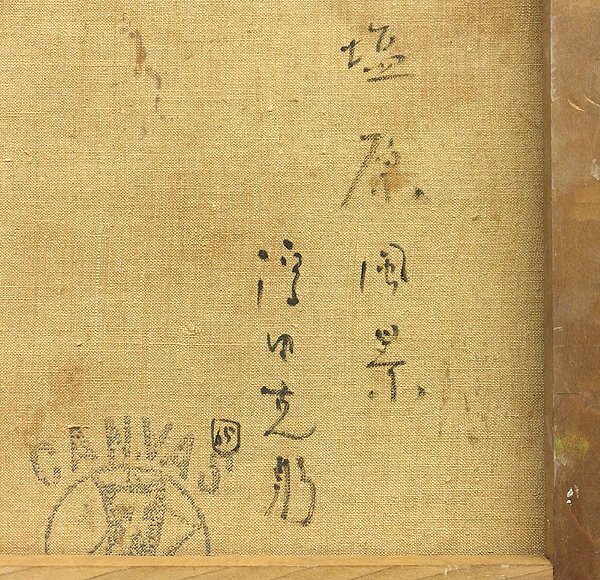 塩原風景
浮田克躬
CANVAS